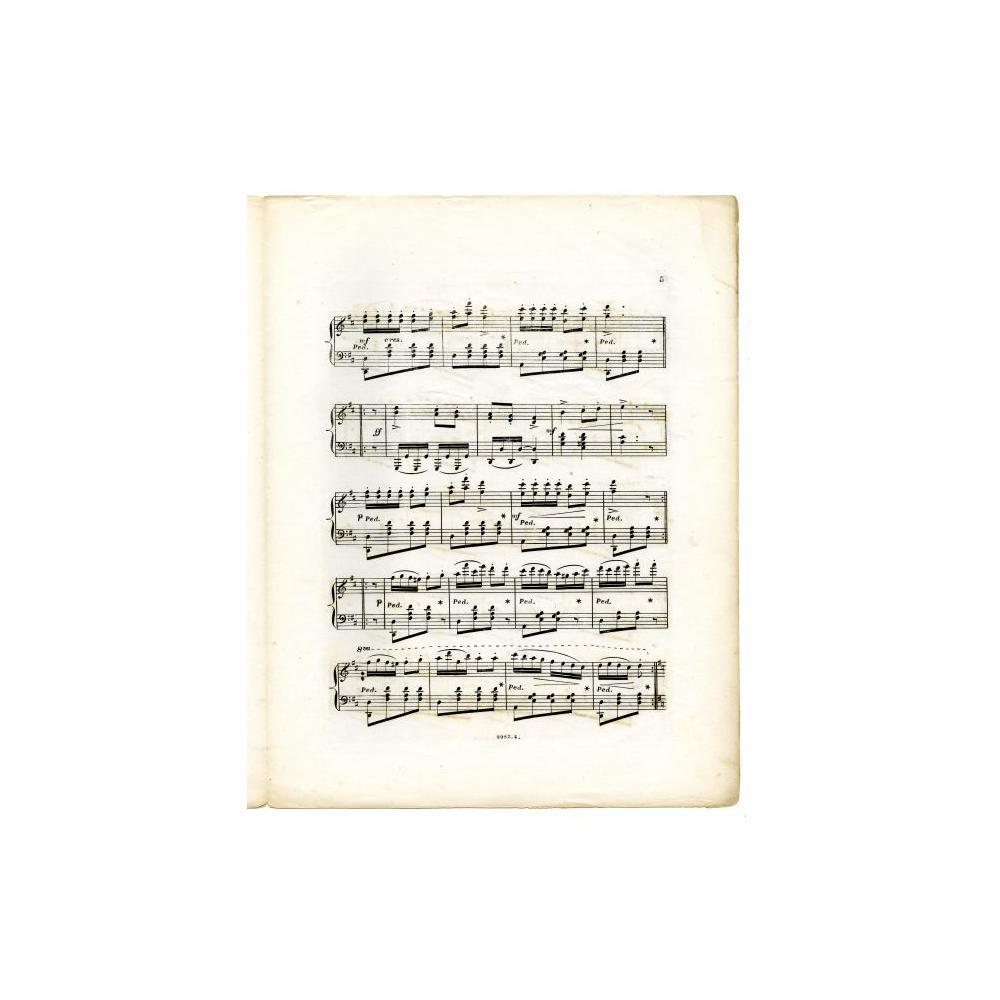 5
mf cres.
Ped. * Ped. * Ped. *
ff mf
p Ped. * mf Ped. * Ped. *
p Ped. * Ped. * Ped. * Ped. *
8va
Ped. * Ped. * Ped. *